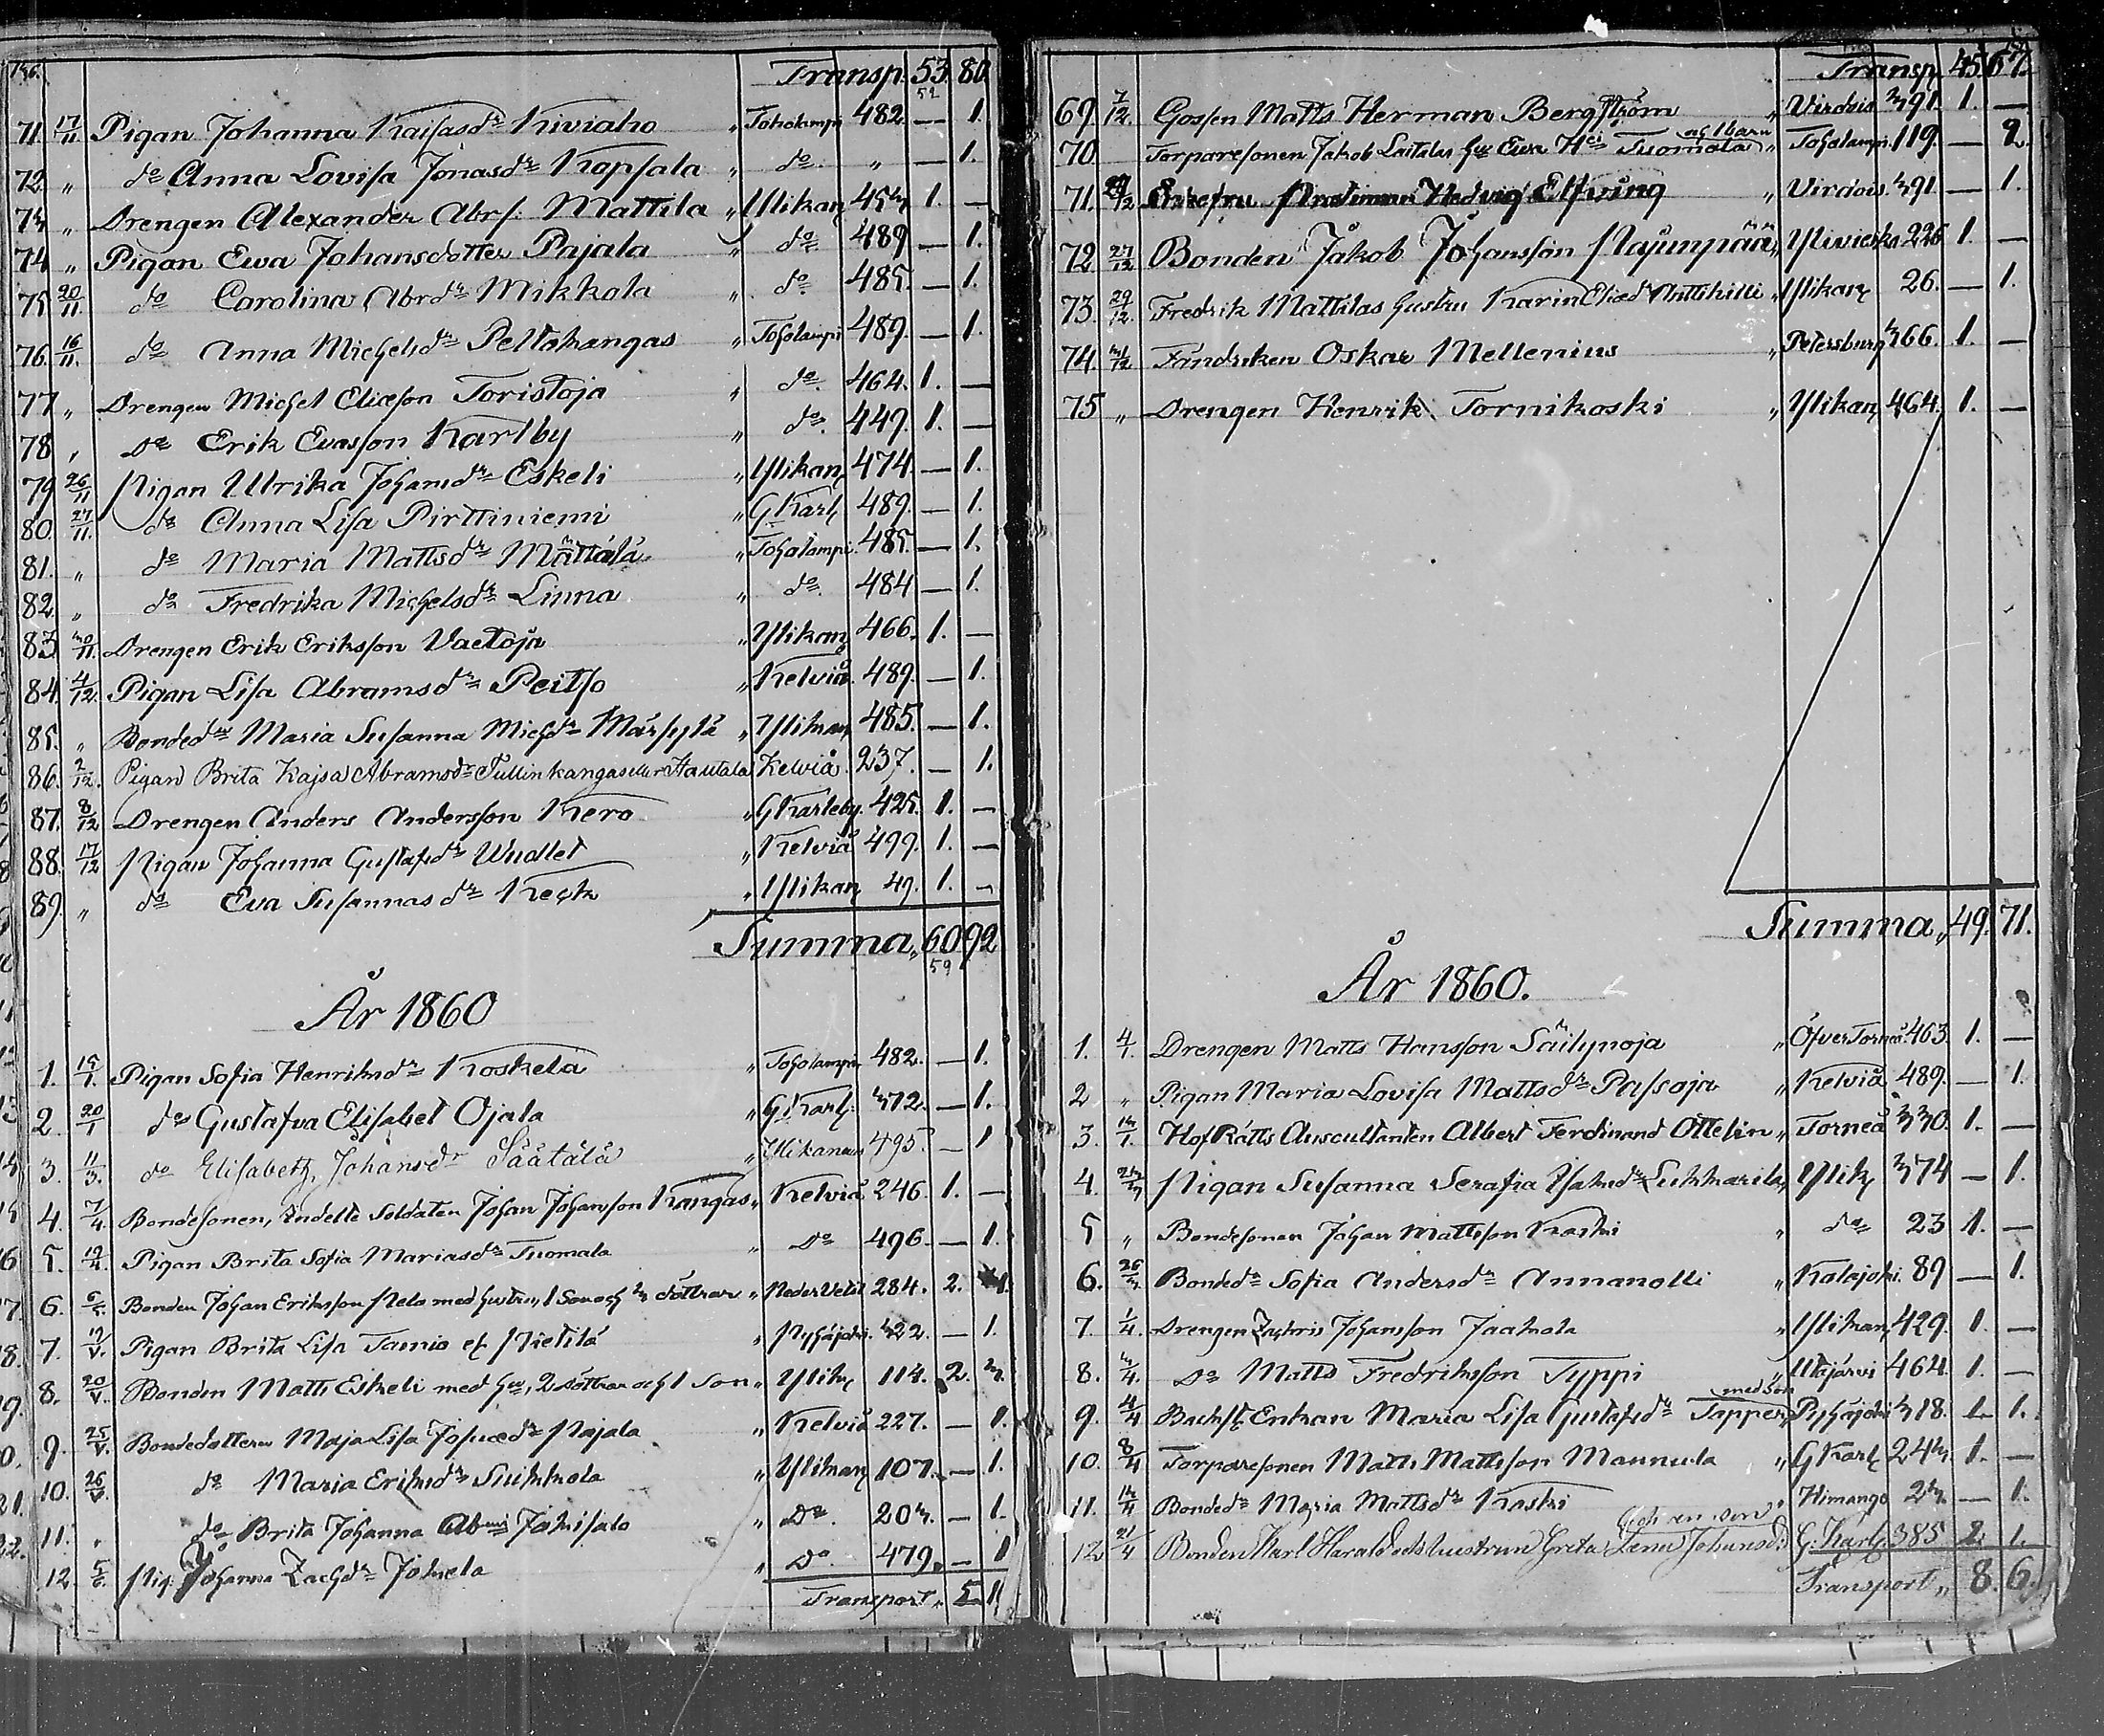 Transp. 53 80
52
71. 17/11 Pigan Johanna Kaisasdr Kiviaho " Toholampi 482. — 1.
72. " do Anna Lovisa Jonasdr Kopsala " do " — 1.
73 " Drengen Alexander Abrs. Mattila " Ylikan 453 1. —
74 " Pigan Ewa Johansdotter Pajala " do 489 — 1.
75 20/11 do Carolina Abrdr Mikkola " do 485. — 1.
76. 16/11. do Anna Michelsdr Peltokangas " Toholampi 489. — 1.
77 " Drengen Michel Eliæson Toristoja " do. 464. 1. —
78 " Do Erik Evasson Karlby " do. 449. 1. —
79 26/11 Pigan Ulrika Johansdr Eskeli " Ylikan 474. — 1.
80. 27/11. do Anna Lisa Pirttiniemi " G Karl 489. — 1.
81. " do Maria Mattsdr Määttälä " Toholampi. 485. — 1.
82. " do Fredrika Michelsdr Linna " do. 484 — 1.
83 30/11. Drengen Erik Eriksson Vaetoja " Ylikan 466. 1. —
84. 4/12. Pigan Lisa Abramsdr Peitso " Kelviå. 489. — 1.
85. " Bondedr Maria Susanna Michdr Märsylä " Ylikan 485. — 1.
86. 2/12. Pigan Brita Kajsa Abramsdr Tullinkangas eller Hautala Kelviå. 237. — 1.
87. 8/12 Drengen Anders Andersson Kero " G Karleby. 425. 1. —
88. 17/12 Pigan Johanna Gustafsdr Wudlet " Kelviå 499. 1. —
89. " do Eva Susannasdr Keck " Ylikan 49. 1. —
Summa, 60 92
59
År 1860
1. 15/1. Pigan Sofia Henriksdr Koskela " Toholampi 482. — 1.
2. 20/1 do Gustafva Elisabet Ojala " G Karl. 372. — 1.
3. 11/3. do Elisabeth, Johansdr Säätälä " Ylikannus 495. — 1
4. 7/4. Bondesonen, Indelte Soldaten Johan Johansson Kangas " Kelviå 246. 1. —
5. 19/4. Pigan Brita Sofia Mariasdr Tuomala " Do 496. — 1.
6. 6/5. Bonden Johan Eriksson Pelo med hustru, 1 Son och 3 döttrar " NederVetil 284. 2. 4.
7. 19/V. Pigan Brita Lisa Tamio ex Pietilä " Pyhäjoki. 322. — 1.
8. 20/V. Bonden Matts Eskeli med hu, 2 döttrar och 1 Son " Ylik 114. 2. 3.
9. 25/V. Bondedottern Maja Lisa Josuædr Pajala " Kelviå 227. — 1.
10. 26/V. do Maria Eriksdr Suikkola " Ylikan 107. — 1.
11. " do Brita Johanna Abmi Jokisalo " Do. 203. — 1.
12. 5/6. Pig. Johanna Zachdr Jokela " Do. 479. — 1
Transport. 5. 11
Transp. 45. 67.
69. 7/12. Gossen Matts Herman Bergström " Virdois 391. 1. —
och 1 barn
70. Torparesonen Jakob Laitalas hu Ewa Hei Tuomala " Toholampi. 119. — 2.
71. Enkefru Hedvig Elfving " Virdois 391. — 1.
72 27/12 Bonden Jakob Johansson Pajunpää " Ylivieska 226 1. —
73. 29/12. Fredrik Mattilas hustru Karin Eliædr Anttikilli " Ylikan 26. — 1.
74. 31/12 Fändriken Oskar Mellenius " Petersburg 366. 1. —
75 " Drengen Henrik Tornikoski " Ylikan 464. 1. —
Summa, 49. 71.
År 1860.
1. 4/1. Drengen Matts Hansson Säilynoja " ÖfverTorneå. 463. 1. —
2 " Pigan Maria Lovisa Mattsdr Passoja " Kelviå 489. — 1.
3. 13/1. HofRätts Auscultanten Albert Ferdinand Ottelin " Torneå 330. 1. —
4. 23/3 Pigan Susanna Serafia Isaksdr Suhharila " Ylik 374 — 1.
5 " Bondesonen Johan Mattsson Koski " do 23 1. —
6. 26/3. Bondedr Sofia Andersdr Annanolli " Kalajoki. 89 — 1.
7. 1/4. Drengen Zachris Johansson Jaakola " Ylikan 429. 1. —
8. 3/4. Do Matts Fredriksson Typpi " Utajärvi 464. 1. —
med Son
9. 4/4 Backst. Enkan Maria Lisa Gustafsdr Tapper " Pyhäjoki 318. 1. 1.
10. 8/4 Torparesonen Matts Mattsson Mannula " G Karl 243. 1. —
11. 13/4 Bondedr Maria Mattsdr Koski Himango 23. — 1.
och en son
12 21/4 Bonden Karl Harald och hustrun Greta Lena Johansdr G: Karl. 385 2. 1.
Transport " 8. 6.